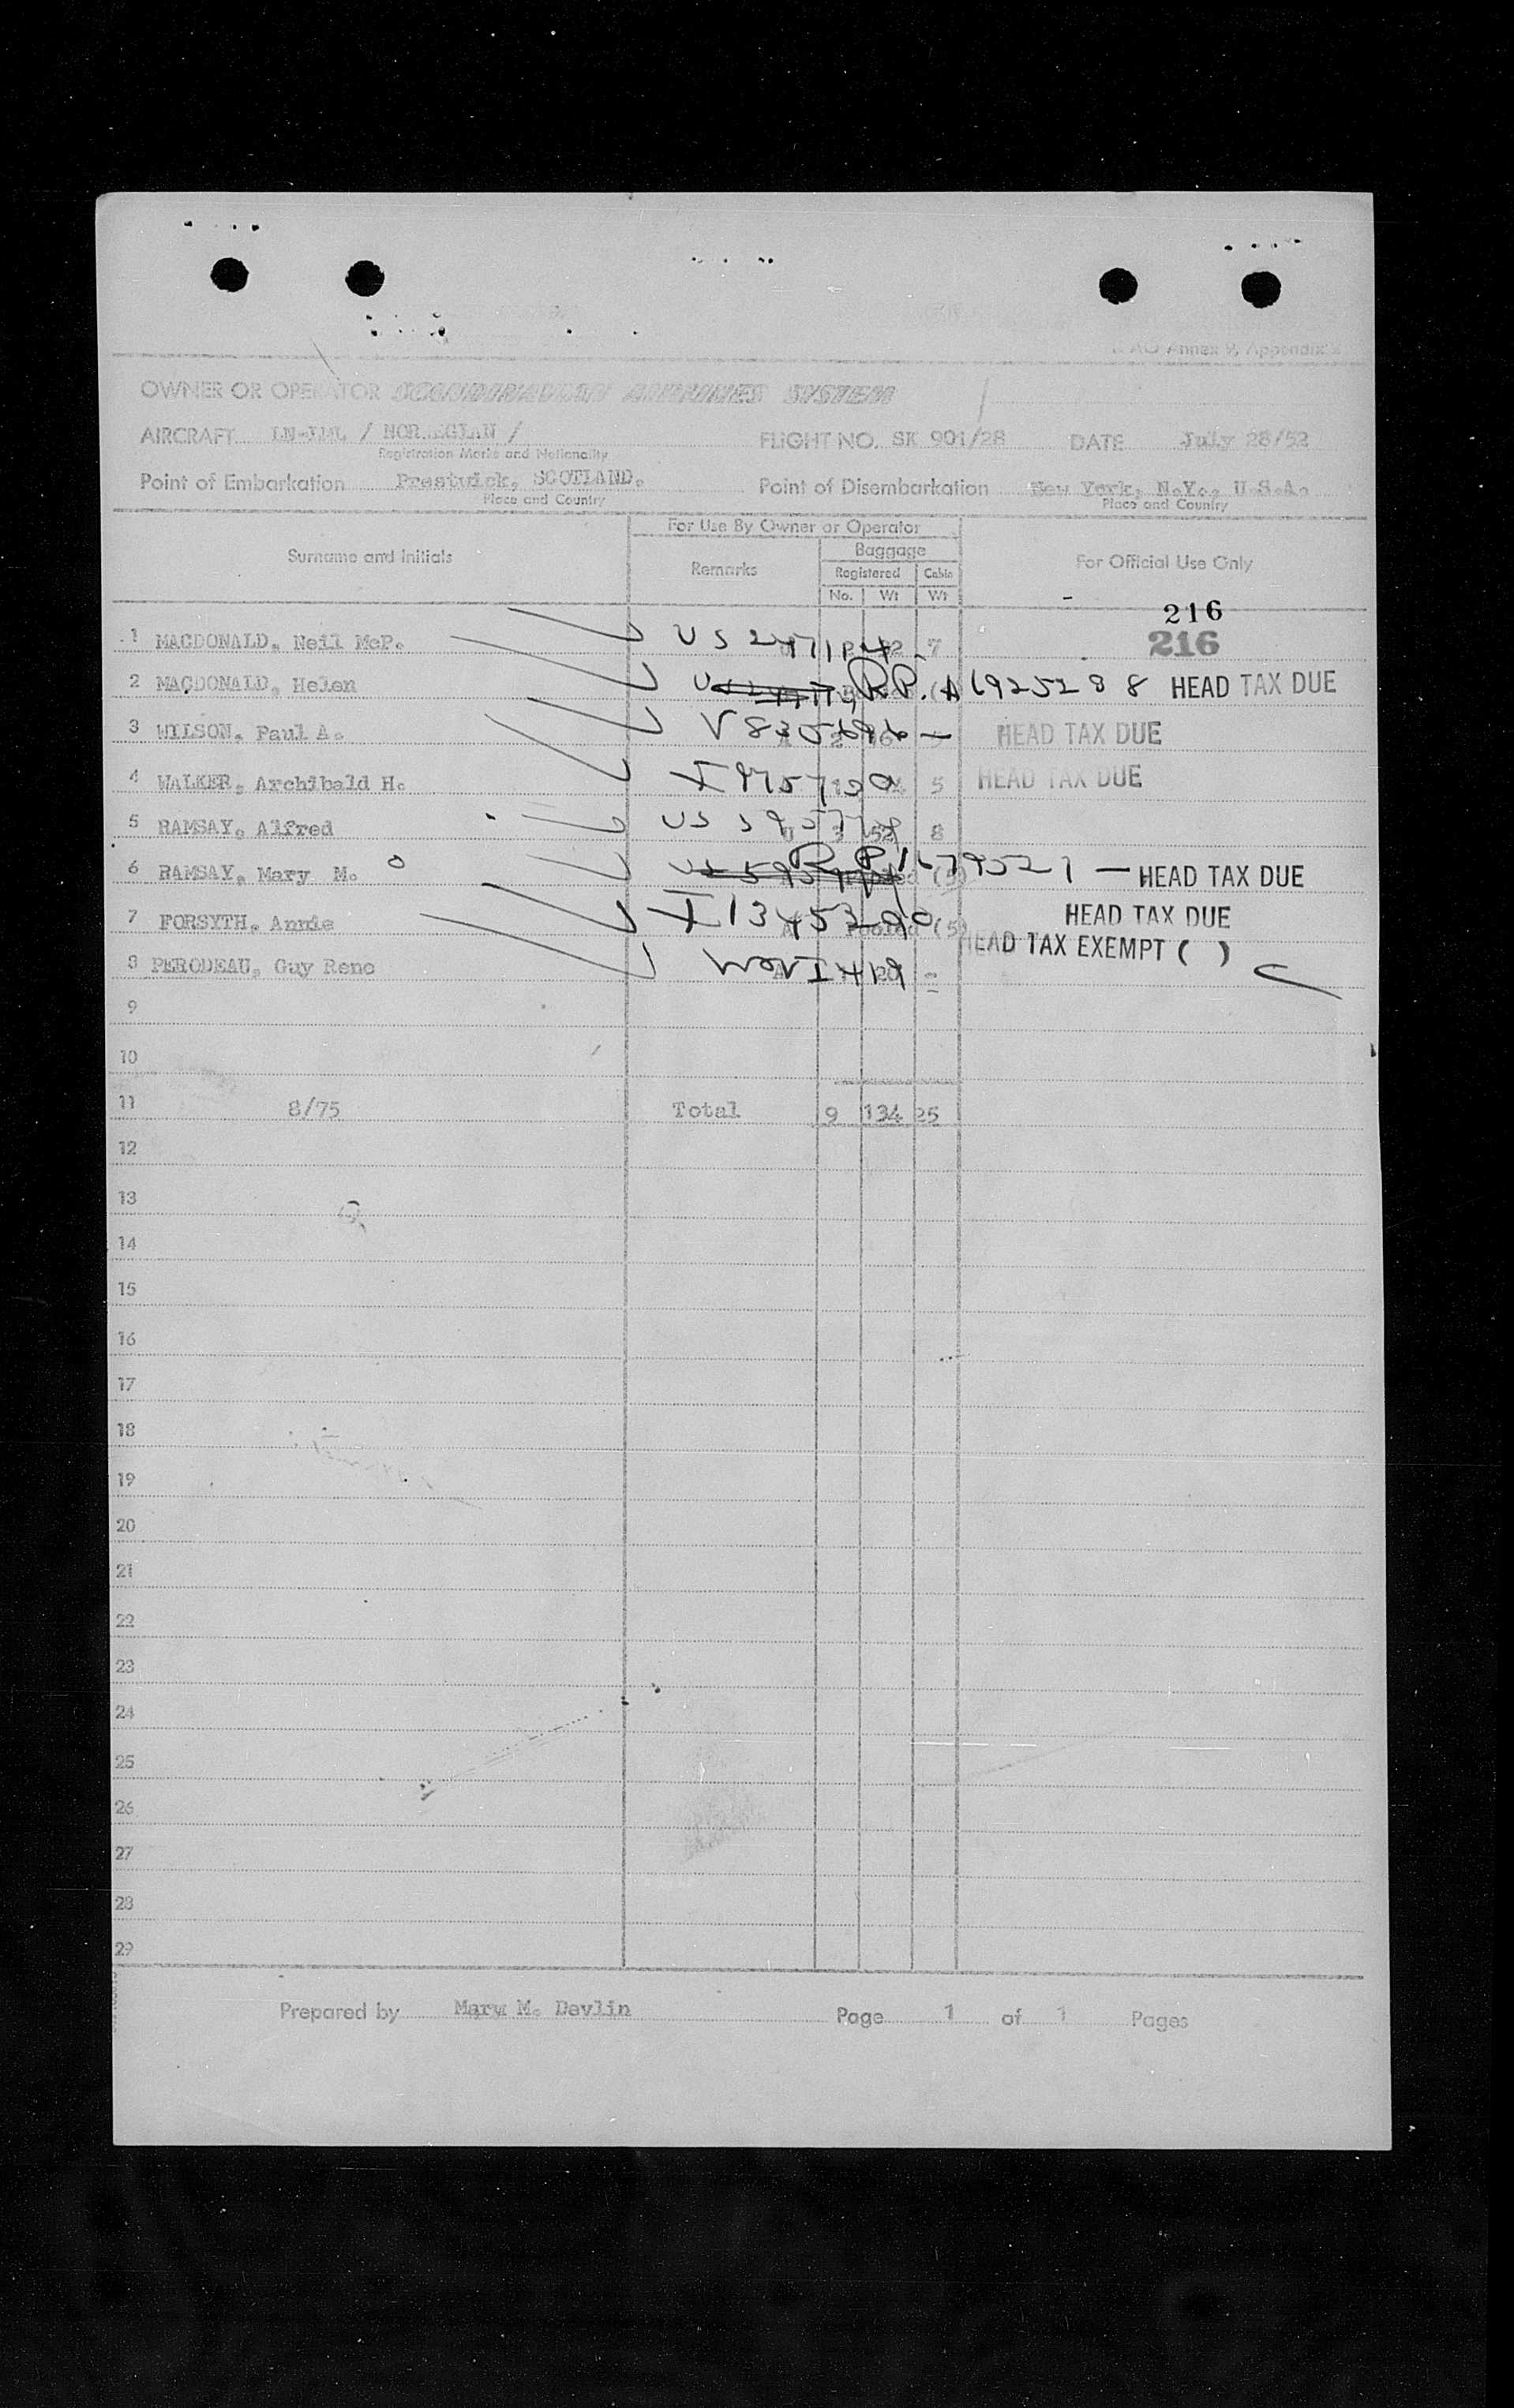 ICAO Annex 9, Appendix
OWNER OR OPERATOR SCANDINAVIAN AIRLINES SYSTEM
AIRCRAFT LN-IML / NORWEGIAN / FLIGHT NO. SK 901/28 DATE July 28/52
Registration Marks and Nationality
Point of Embarkation Prestwick, SCOTLAND. Point of Disembarkation New York, N.Y., U.S.A.
Place and Country Place and Country
For Use By Owner or Operator
Surname and Initials Remarks Baggage For Official Use Only
Registered Cabin
No. Wt Wt
216
1 MACDONALD, Neil McP. US 7 216
2 MACDONALD, Helen R.P. A6925288 HEAD TAX DUE
3 WILSON, Paul A. HEAD TAX DUE
4 WALKER, Archibald H. 5 HEAD TAX DUE
5 RAMSAY, Alfred US 3 52 8
6 RAMSAY, Mary M. R.P. — HEAD TAX DUE
7 FORSYTH, Annie Pooled (5) HEAD TAX DUE
HEAD TAX EXEMPT ( )
8 PERODEAU, Guy Rene
9
10
11 8/75 Total 9 134 25
12
13
14
15
16
17
18
19
20
21
22
23
24
25
26
27
28
29
Prepared by Mary M. Devlin Page 1 of 1 Pages